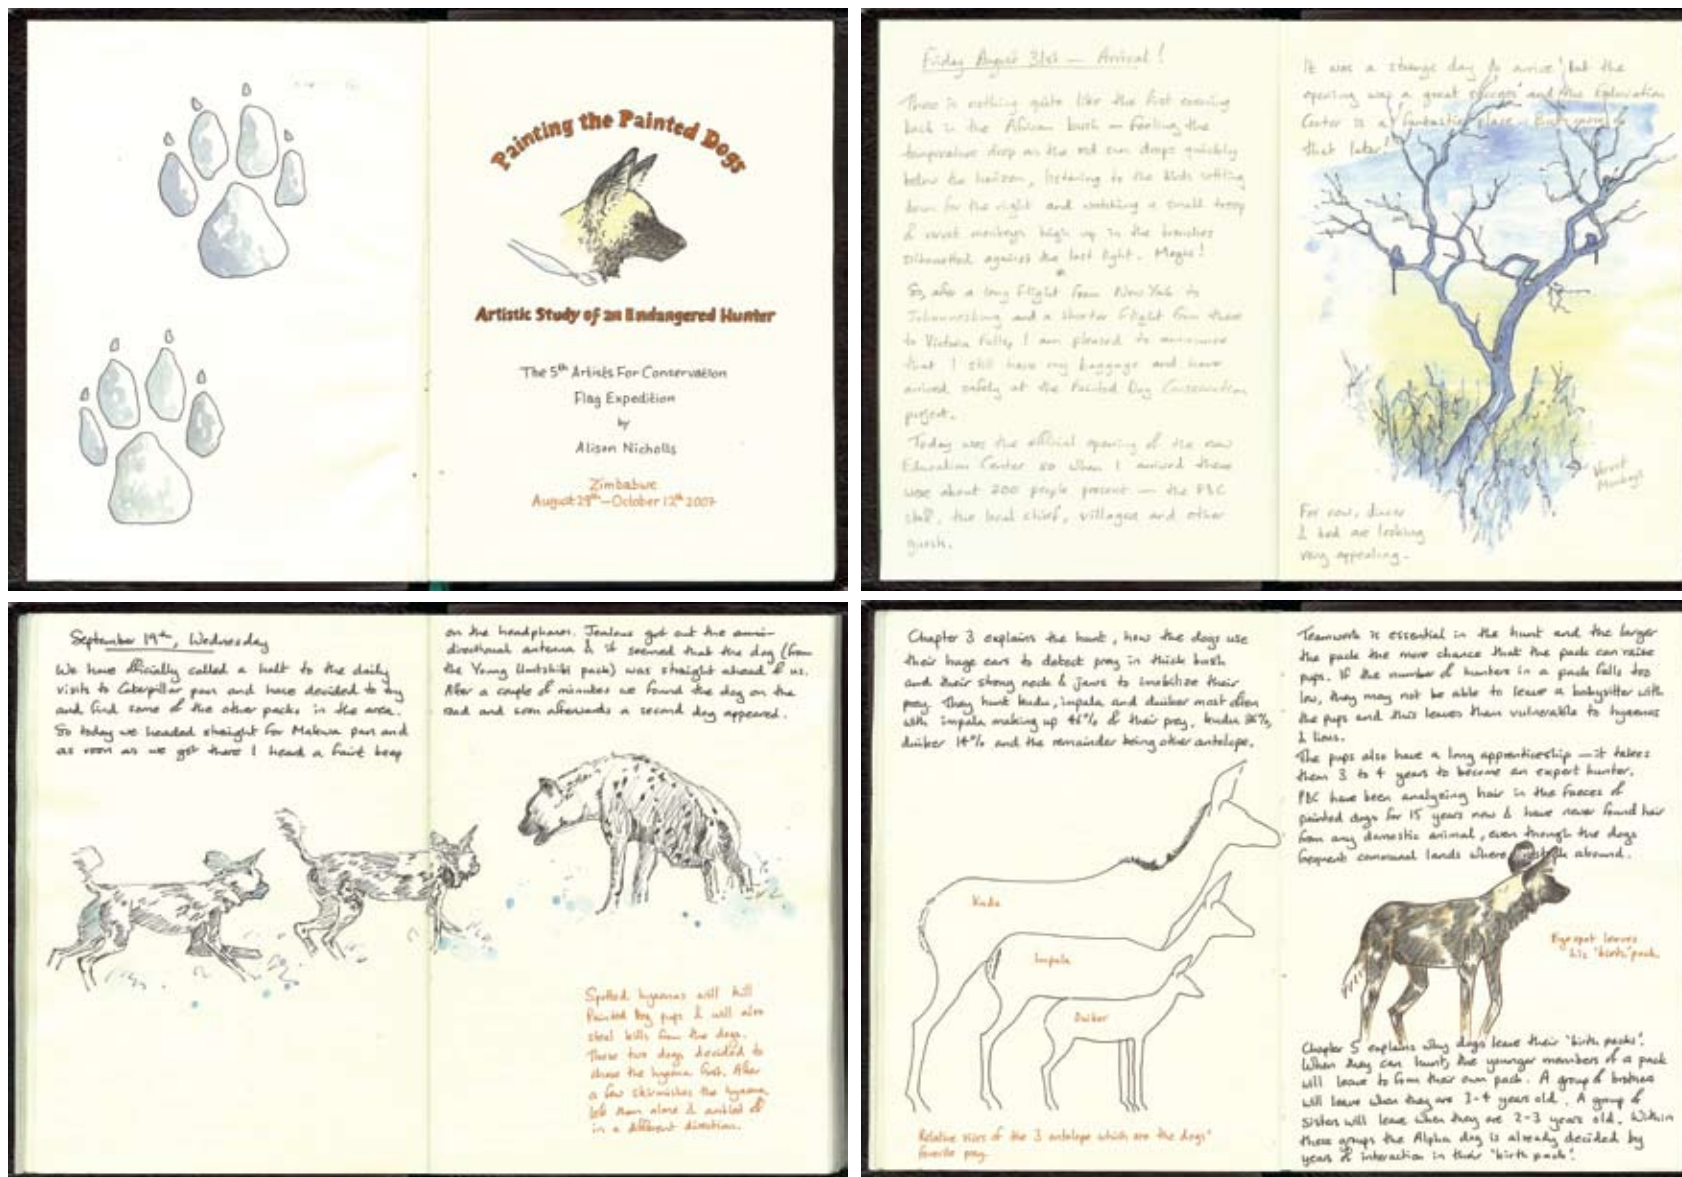 Painting the Painted Dogs
Artistic Study of an Endangered Hunter
The 5th Artists For Conservation
Flag Expedition
by
Alison Nicholls
Zimbabwe
August 29th—October 12th 2007
Friday August 31st — Arrival!
There is nothing quite like the first evening
back in the African bush — feeling the
temperature drop as the red sun drops quickly
below the horizon, listening to the birds settling
down for the night and watching a small troop
of vervet monkeys high up in the branches
silhouetted against the last light. Magic!
So, after a long flight from New York to
Johannesburg and a shorter flight from there
to Victoria Falls, I am pleased to announce
that I still have my baggage and have
arrived safely at the Painted Dog Conservation
project.
Today was the official opening of the new
Education Center so when I arrived there
were about 200 people present — the PDC
staff, the local chief, villagers and other
guests.
It was a strange day to arrive! but the
opening was a great success and the Education
Center is a fantastic place. But more on
that later!
Vervet
Monkeys
For now, dinner
& bed are looking
very appealing.
September 19th, Wednesday
We have officially called a halt to the daily
visits to Caterpillar pan and have decided to try
and find some of the other packs in the area.
So today we headed straight for Makwa pan and
as soon as we got there I heard a faint beep
on the headphones. Jealous got out the omni-
directional antenna & it seemed that the dog (from
the Young Umtshibi pack) was straight ahead of us.
After a couple of minutes we found the dog on the
road and soon afterwards a second dog appeared.
Spotted hyaenas will kill
Painted Dog pups & will also
steal kills from the dogs.
These two dogs decided to
chase the hyaena first. After
a few skirmishes the hyaena
left them alone & ambled off
in a different direction.
Chapter 3 explains the hunt, how the dogs use
their huge ears to detect prey in thick bush
and their strong neck & jaws to imobilize their
prey. They hunt kudu, impala and duiker most often
with impala making up 46% of their prey, kudu 26%,
duiker 14% and the remainder being other antelope.
Kudu
Impala
Duiker
Relative sizes of the 3 antelope which are the dogs'
favorite prey.
Teamwork is essential in the hunt and the larger
the pack the more chance that the pack can raise
pups. If the number of hunters in a pack falls too
low, they may not be able to leave a babysitter with
the pups and this leaves them vulnerable to hyaenas
& lions.
The pups also have a long apprenticeship — it takes
them 3 to 4 years to become an expert hunter.
PDC have been analyzing hair in the faeces of
painted dogs for 15 years now & have never found hair
from any domestic animal, even though the dogs
frequent communal lands where abound.
Eyespot leaves
his 'birth' pack
Chapter 5 explains why dogs leave their 'birth packs'.
When they can hunt, the younger members of a pack
will leave to form their own pack. A group of brothers
will leave when they are 3-4 years old. A group of
sisters will leave when they are 2-3 years old. Within
these groups the Alpha dog is already decided by
years of interaction in their 'birth pack'.